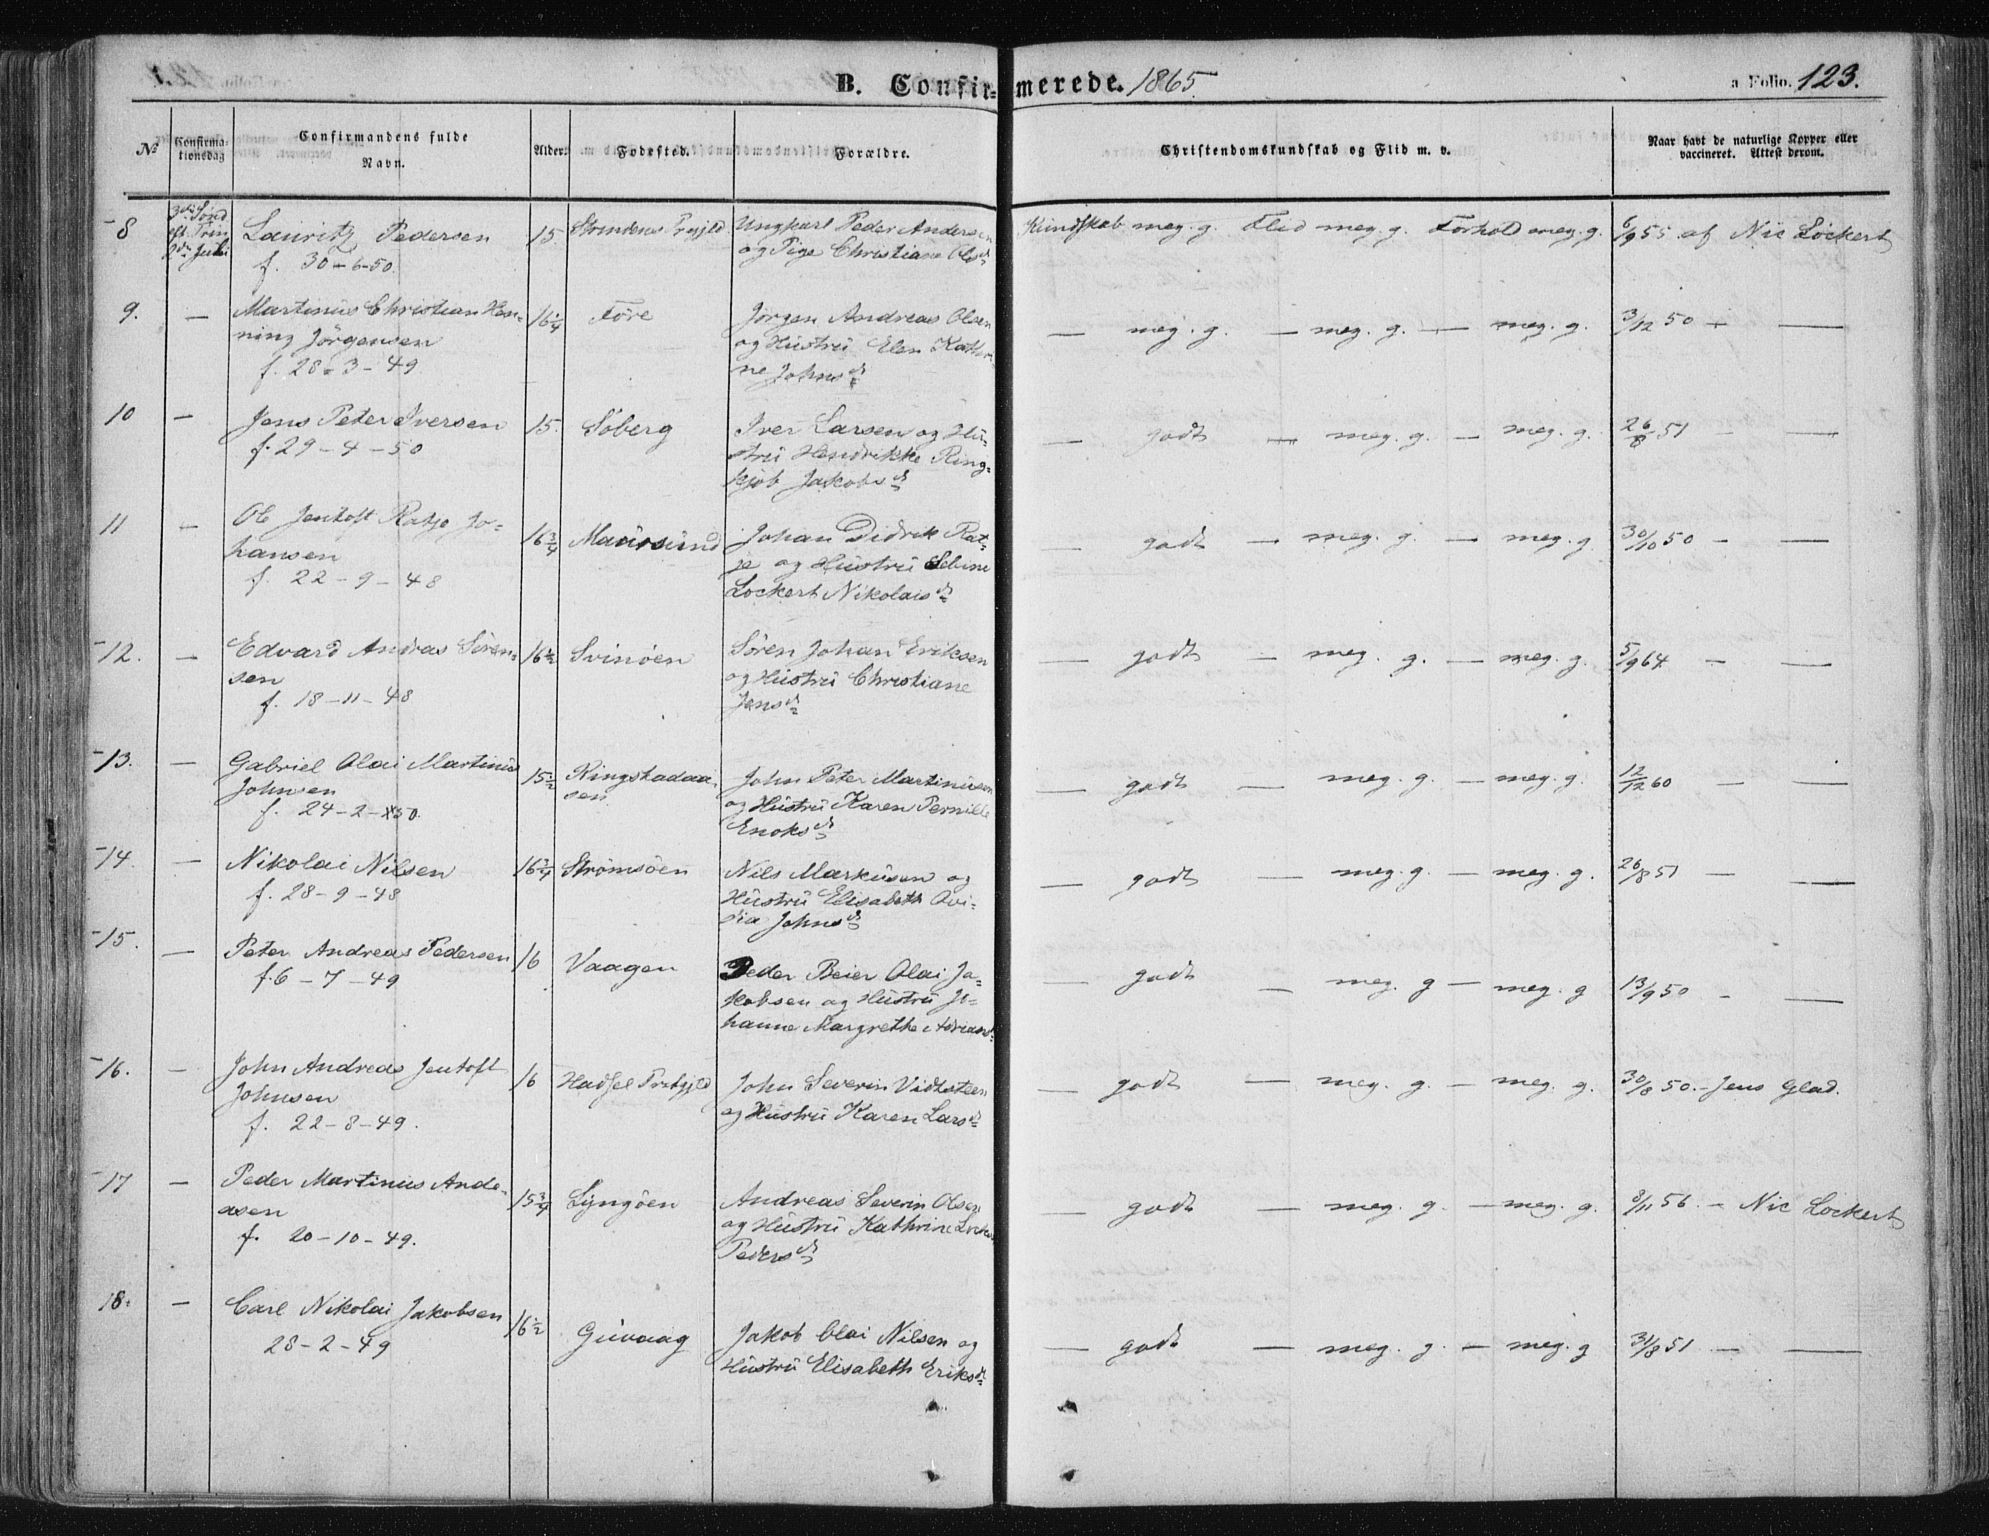 B. Confirmerede. 1865. a Folio. 123.
No Confirmationsdag Confirmandens fulde Navn. Alder. Fødested. Forældre. Christendomskundskab og Flid m. v. Naar havt de naturlige Kopper eller vaccineret. Attest derom.
8 3die Sönd Lauritz Pedersen 15 Strindens Prgjld Ungkarl Peder Andersen Kundskab meg. g. Flid meg. g. Forhold meg. g. 6/9 55 af Nic Löckert
eft. Trin
2den Juli f. 30-6-50. og Pige Christiane Olsd
9. — Martinus Christian Hen- 16 1/4 Före Jörgen Andreas Olsen — meg. g. — meg. g. — meg. g. 3/12 50 — —
ning Jörgensen og Hustru Elen Kathri-
f. 28-3-49. ne Johnsd
10 — Jens Peter Iversen 15. Söberg Iver Larsen og Hu- — godt — meg. g. — meg. g. 26/8 51 — —
f. 29-4-50 stru Hendrikke Ring-
kjöb Jakobsd
11 — Ole Jentoft Ratje Jo- 16 3/4 Maursund Johan Didrik Rat- — godt — meg. g. — meg. g 30/10 50 — —
hansen je og Hustru
f. 22-9-48 Lockert Nikolaisd
12. — Edvard Andreas Sören- 16 1/2 Svinöen Sören Johan Eriksen — godt — meg. g. — meg. g. 5/9 64 — —
sen og Hustru Christiane
f. 18-11-48 Jensd
13. — Gabriel Olai Martinus 15 1/2 Ringstadaa- John Peter Martinusen — godt — meg. g. — meg. g. 12/12 60 — —
Johnsen sen og Hustru Karen Pernille
f. 24-2-50. Enoksd
14. — Nikolai Nilsen 16 3/4 Strömsöen Nils Markusen og — godt — meg. g. — meg. g. 26/8 51 — —
f. 28-9-48 Hustru Elisabeth Ovi-
dia Johnsd
15. — Peter Andreas Pedersen 16 Vaagen Peder Beier Olai Ja- — godt — meg. g — meg. g 13/9 50 — —
f. 6-7-49 kobsen og Hustru Jo-
hanne Margrethe Adriansd
16. — John Andreas Jentoft 16 Hadsel Prstgjld John Severin Vidtsteen — godt — meg. g. — meg. g. 30/8 50. — Jens Glad.
Johnsen og Hustru Karen Larsd
f. 22-8-49.
17 — Peder Martinus Ande- 15 3/4 Lyngöen Andreas Severin Olsen — godt — meg. g. — meg. g. 8/11 56. — Nic Lockert
asen og Hustru Kathrine
f. 20-10-49. Pedersd
18. — Carl Nikolai Jakobsen 16 1/2 Guvaag Jakob Olai Nilsen og — godt — meg. g. — meg. g 31/8 51 — —
28-2-49 Hustru Elisabeth Eriksd